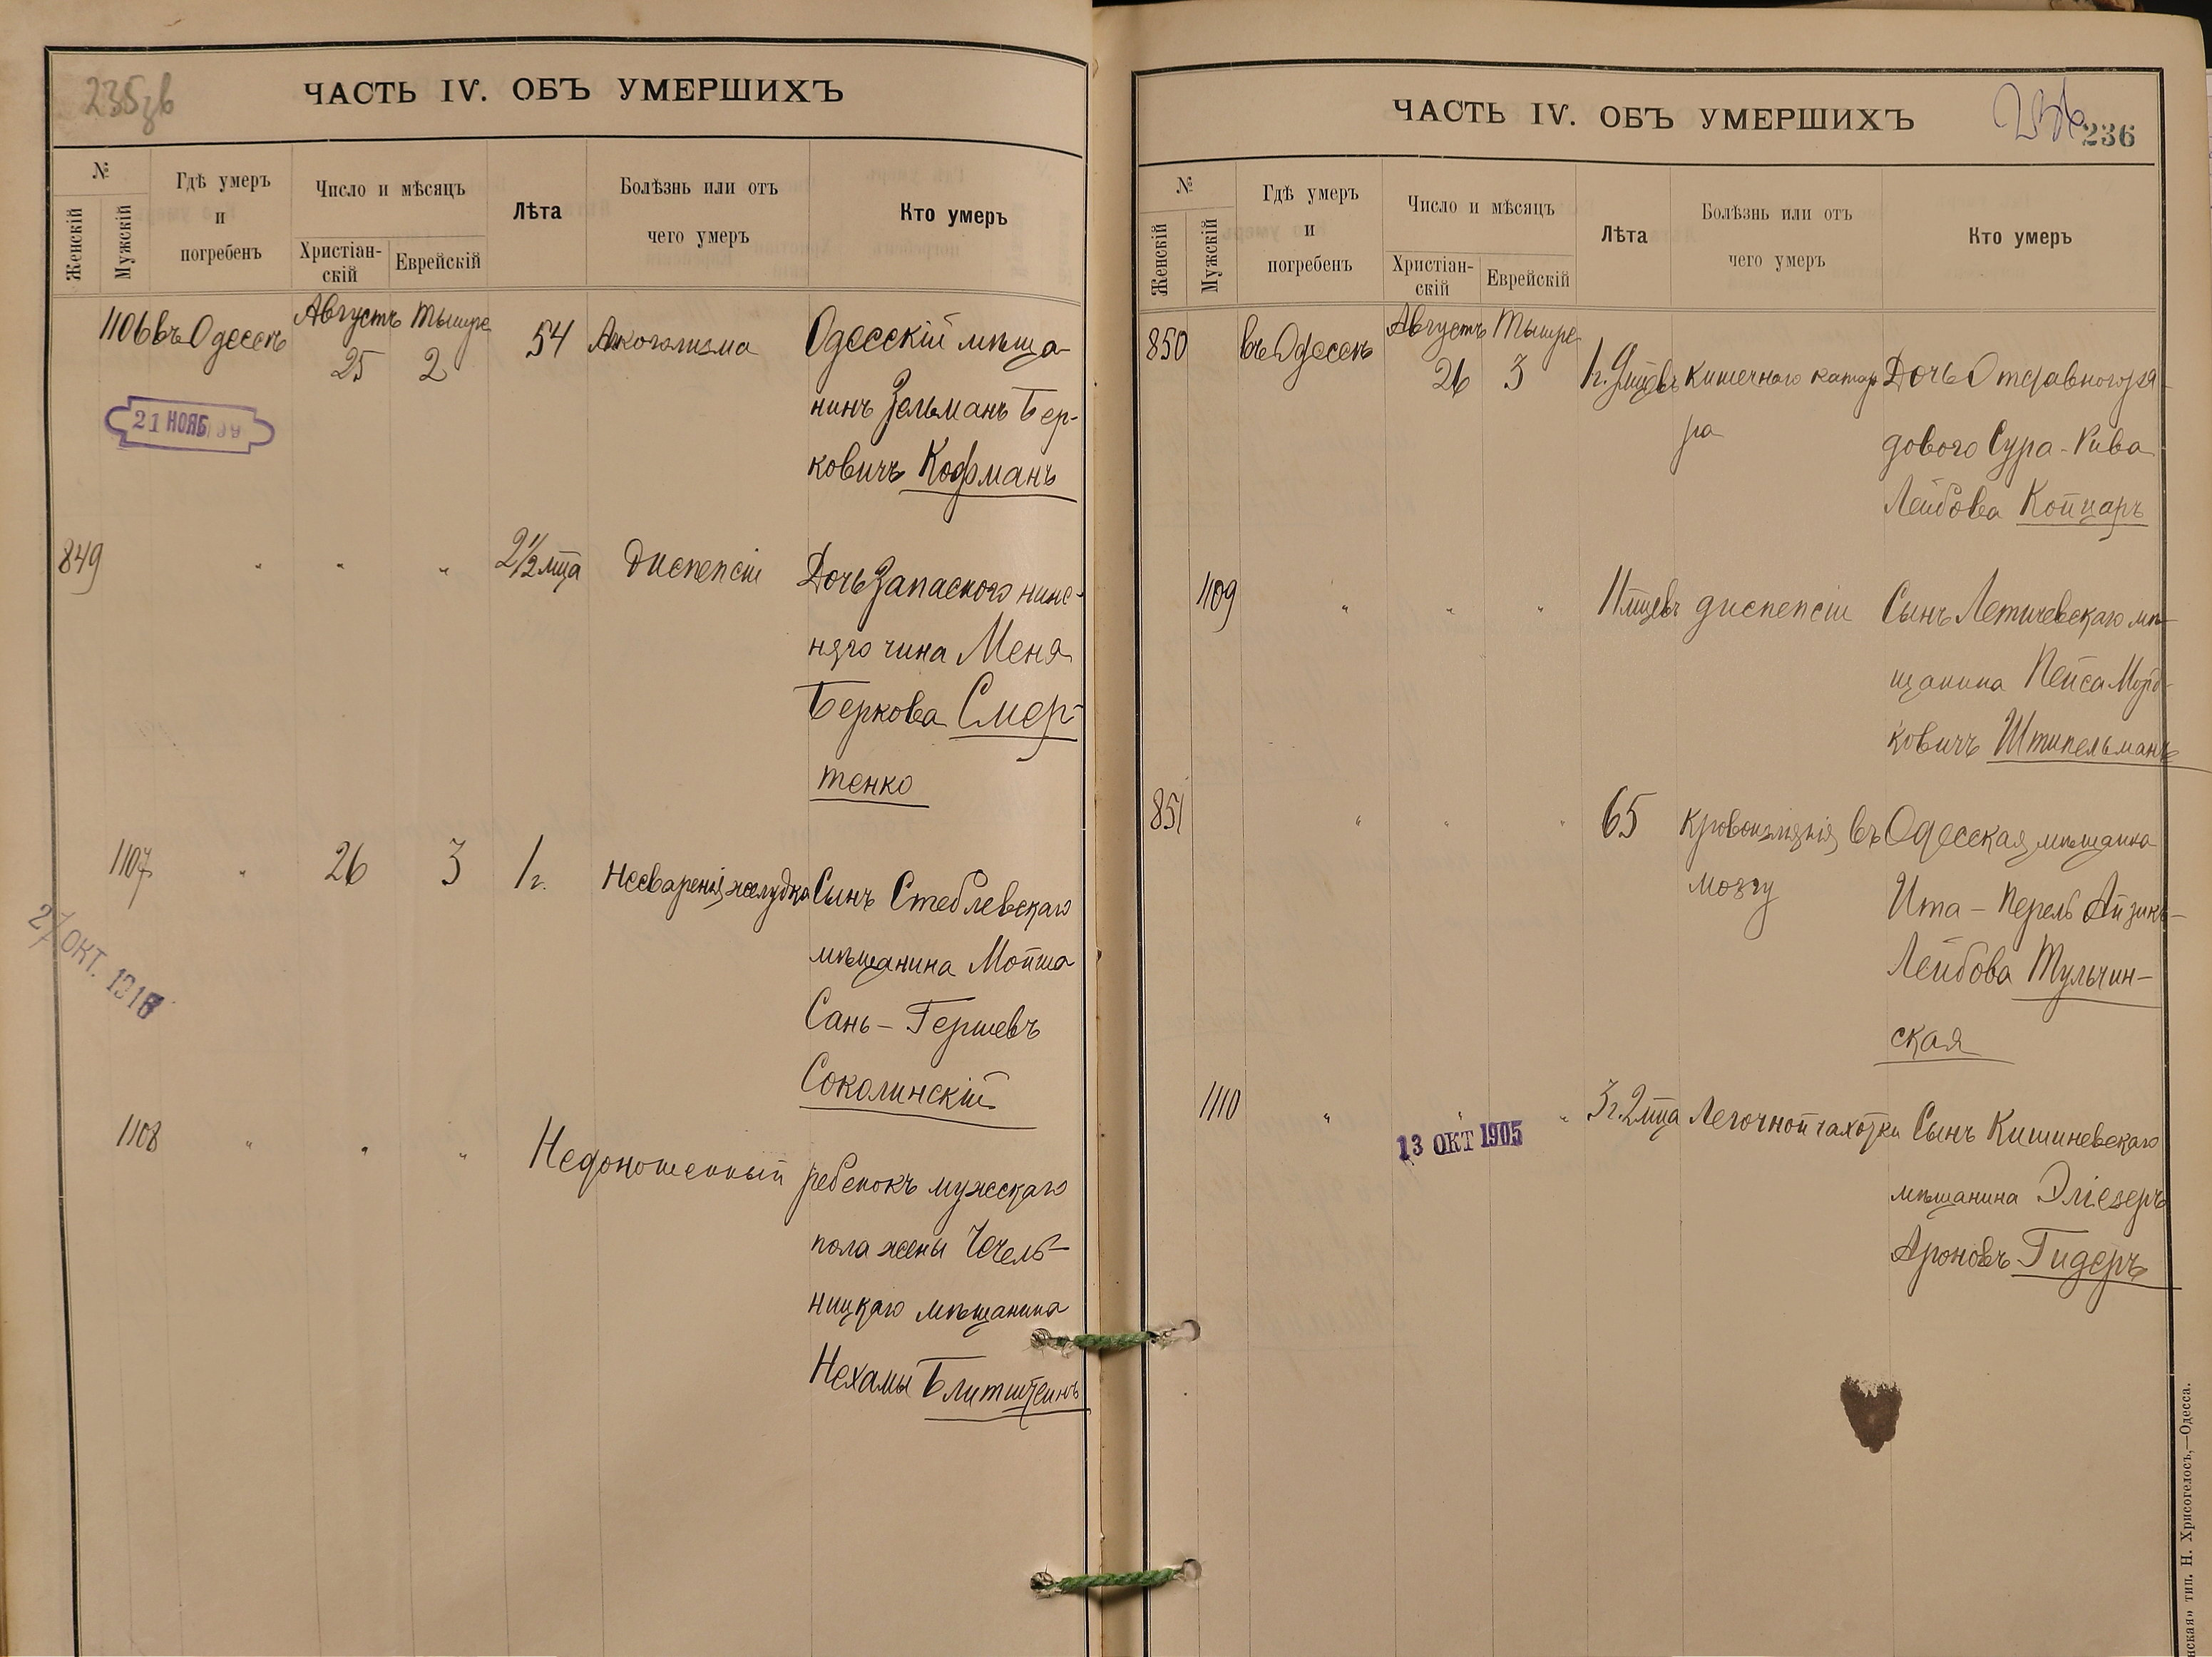 235 зв
ЧАСТЬ IV. ОБЪ УМЕРШИХЪ
№
Женскій
Мужскій
Гдѣ умеръ
и
погребенъ
Число и мѣсяцъ
Христіан-
скій
Еврейскій
Лѣта
Болѣзнь или отъ
чего умеръ
Кто умеръ
1106 въ Одессѣ Августъ 25 Тышре 2 54 Алкоголизма Одесскій мѣща-
нинъ Зельманъ Бер-
ковичъ Кофманъ
21 НОЯБ
849 " " " 2 1/2 мца диспепсіи Дочь Запаснаго ниж-
няго чина Меня
Беркова Смер-
тенко
1107 " 26 3 1 г. Несваренія желудка Сынъ Стеблевскаго
мѣщанина Мойша
Сань-Гершевъ
Соколинскій
27 ОКТ. 1916
1108 " " " Недоношенный ребенокъ мужскаго
пола жены Чечель-
ницкаго мѣщанина
Нехамы Блитштейнъ
ЧАСТЬ IV. ОБЪ УМЕРШИХЪ
236
236
№
Женскій
Мужскій
Гдѣ умеръ
и
погребенъ
Число и мѣсяцъ
Христіан-
скій
Еврейскій
Лѣта
Болѣзнь или отъ
чего умеръ
Кто умеръ
850 въ Одессѣ Августъ 26 Тышре 3 1 г. 9 мцевъ кишечнаго катар- Дочь Отставного ря-
ра дового Сура-Рива
Лейбова Койцаръ
1109 " " " 11 мцевъ диспепсіи Сынъ Летичевскаго мѣ-
щанина Пейса Морд-
ковичъ Штипельманъ
851 " " " 65 Кровоизліянія въ Одесская мѣщанка
мозгу Ита-Перель Айзикъ-
Лейбова Тульчин-
ская
1110 " " " 3 г. 2 мца Легочной чахотки Сынъ Кишиневскаго
13 ОКТ 1905
мѣщанина Эліезеръ
Ароновъ Гидеръ
нская» тип. Н. Хрисогелосъ,—Одесса.